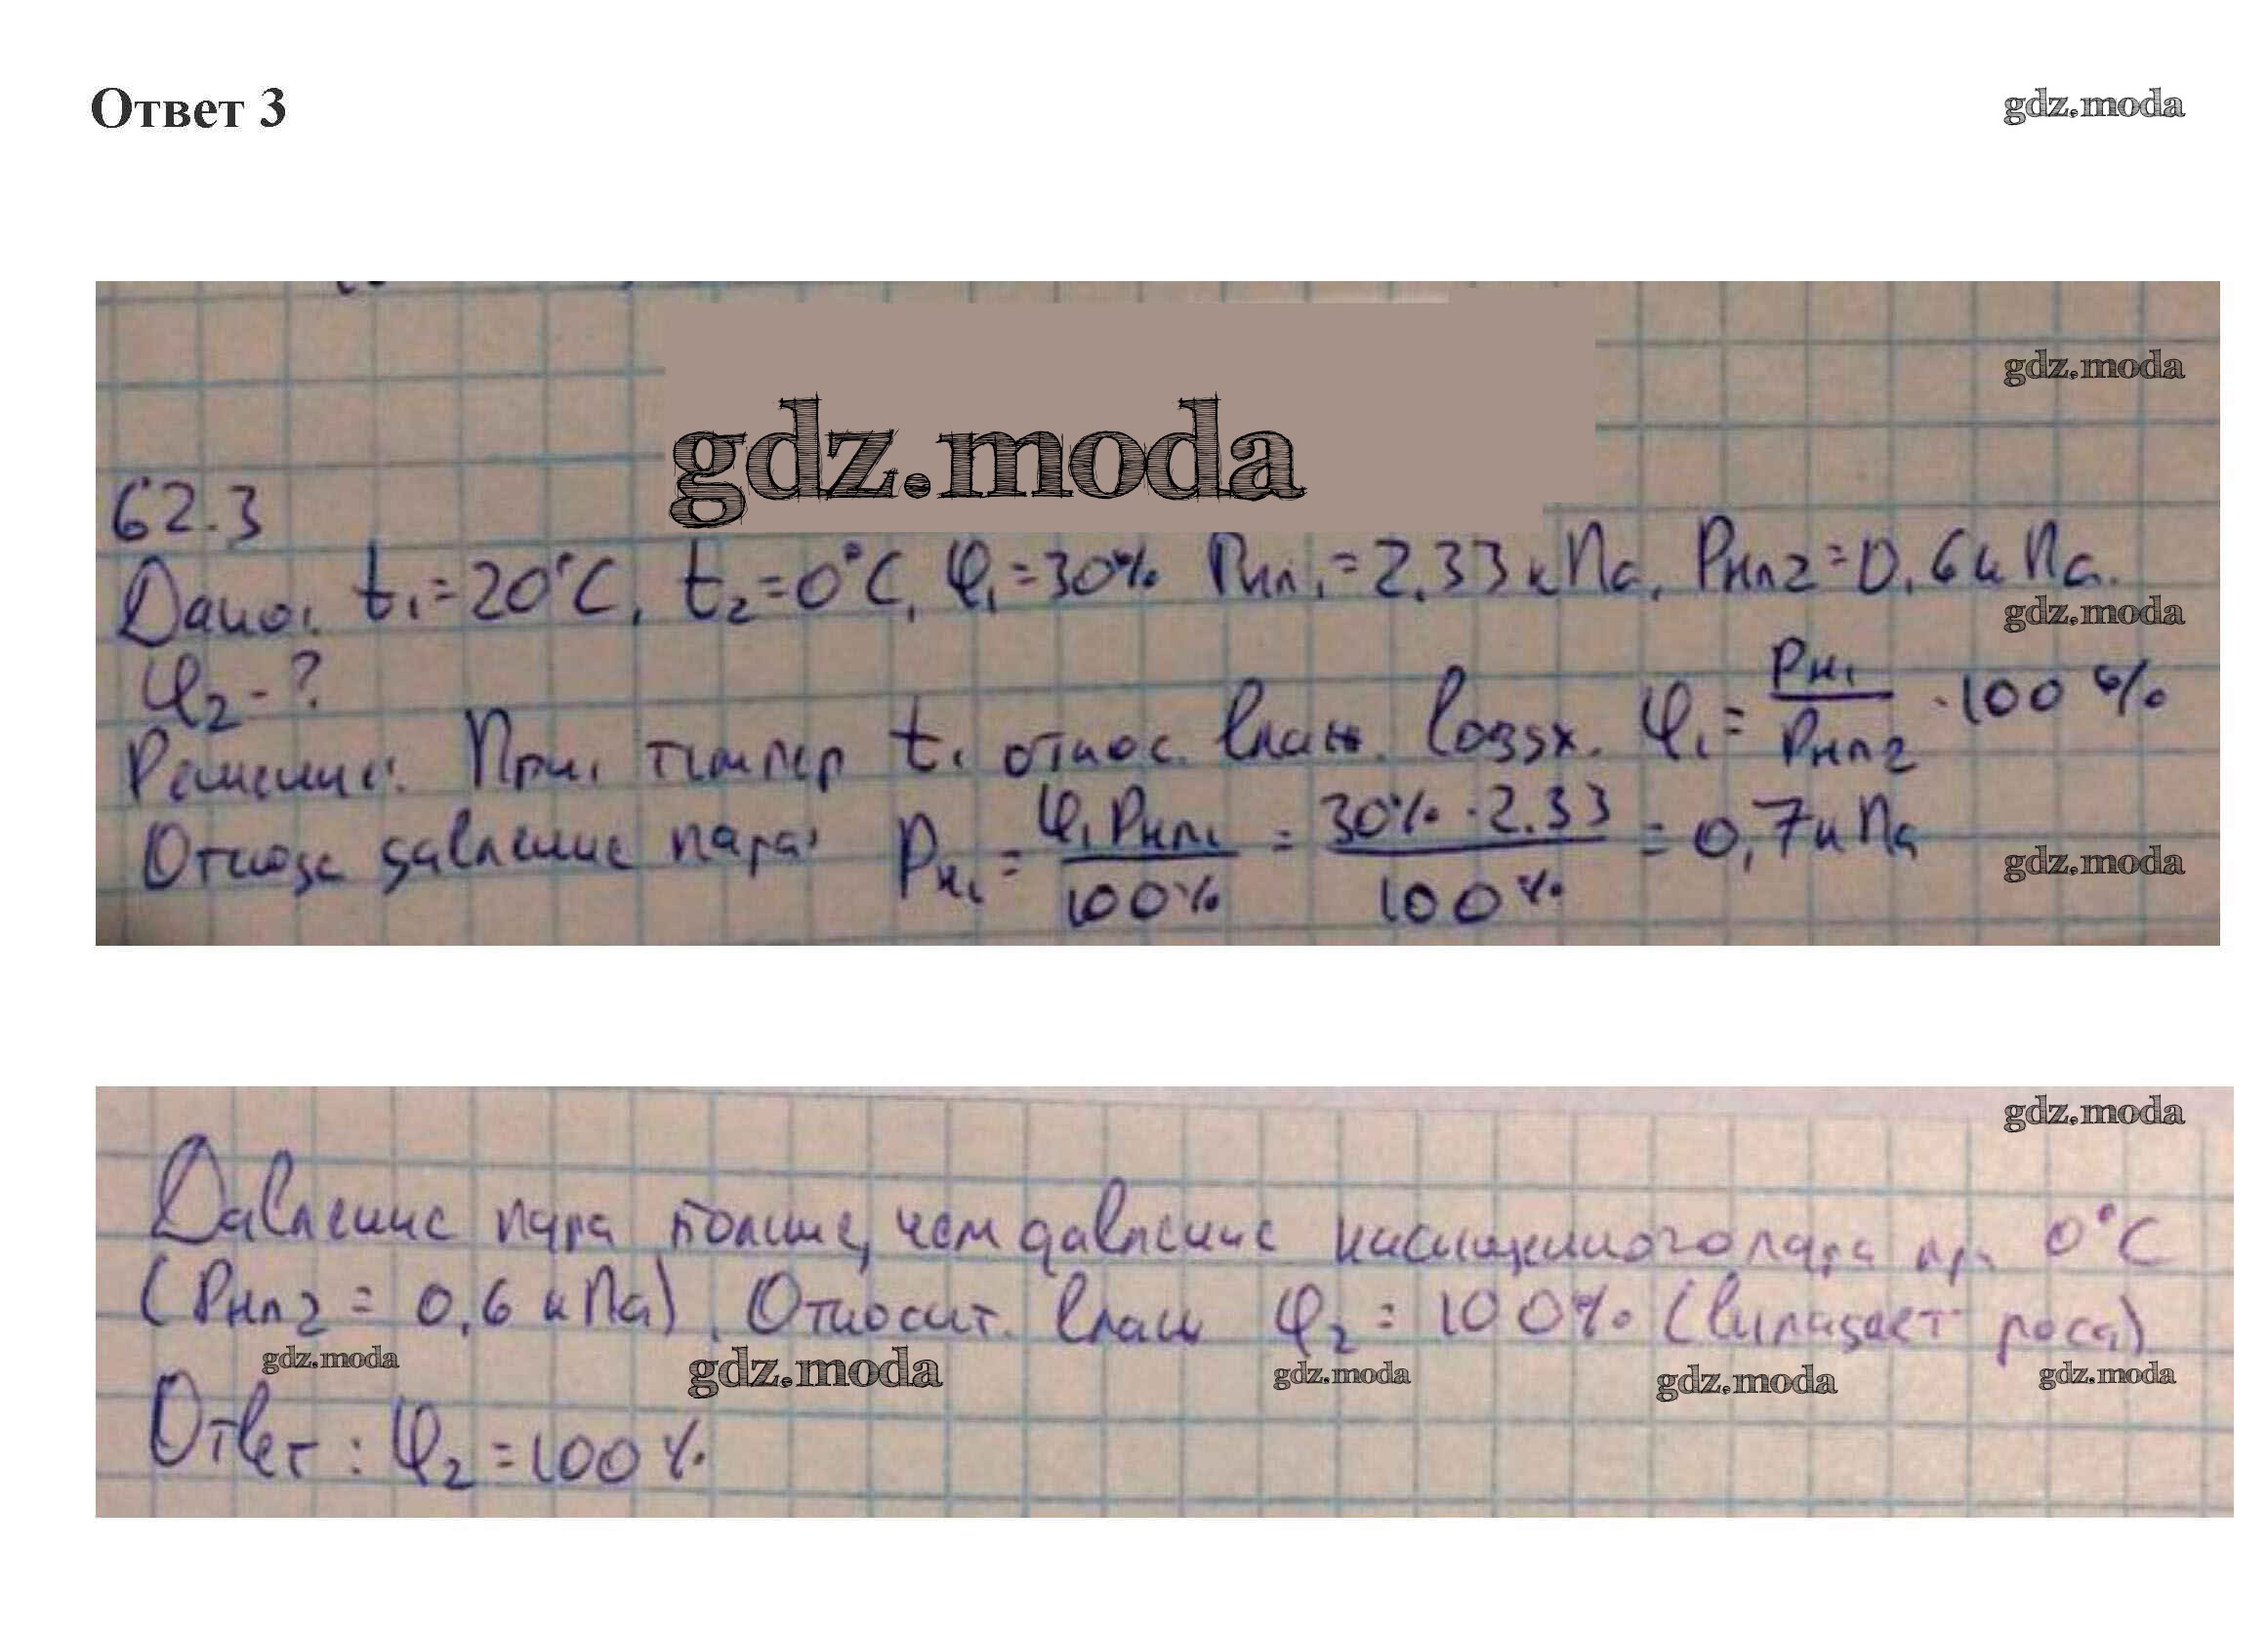 Ответ 3
gdz.moda
gdz.moda
gdz.moda
62.3
Дано: t₁=20°C, t₂=0°C, φ₁=30% Pнп₁=2.33кПа, Pнп2=0,6кПа.
gdz.moda
φ₂-?
Решение: При темпер t₁ относ. влаж. возд. φ₁= Pн₁/Pнп2 ·100%
Отсюда давление пара: Pн₁ = φ₁Pнп₁/100% = 30%·2.33/100% = 0,7кПа
gdz.moda
gdz.moda
Давление пара больше, чем давление насыщенного пара при 0°C
(Pнп2 = 0,6 кПа). Относит. влаж φ₂ = 100% (выпадает роса)
gdz.moda gdz.moda gdz.moda gdz.moda gdz.moda
Ответ: φ₂=100%